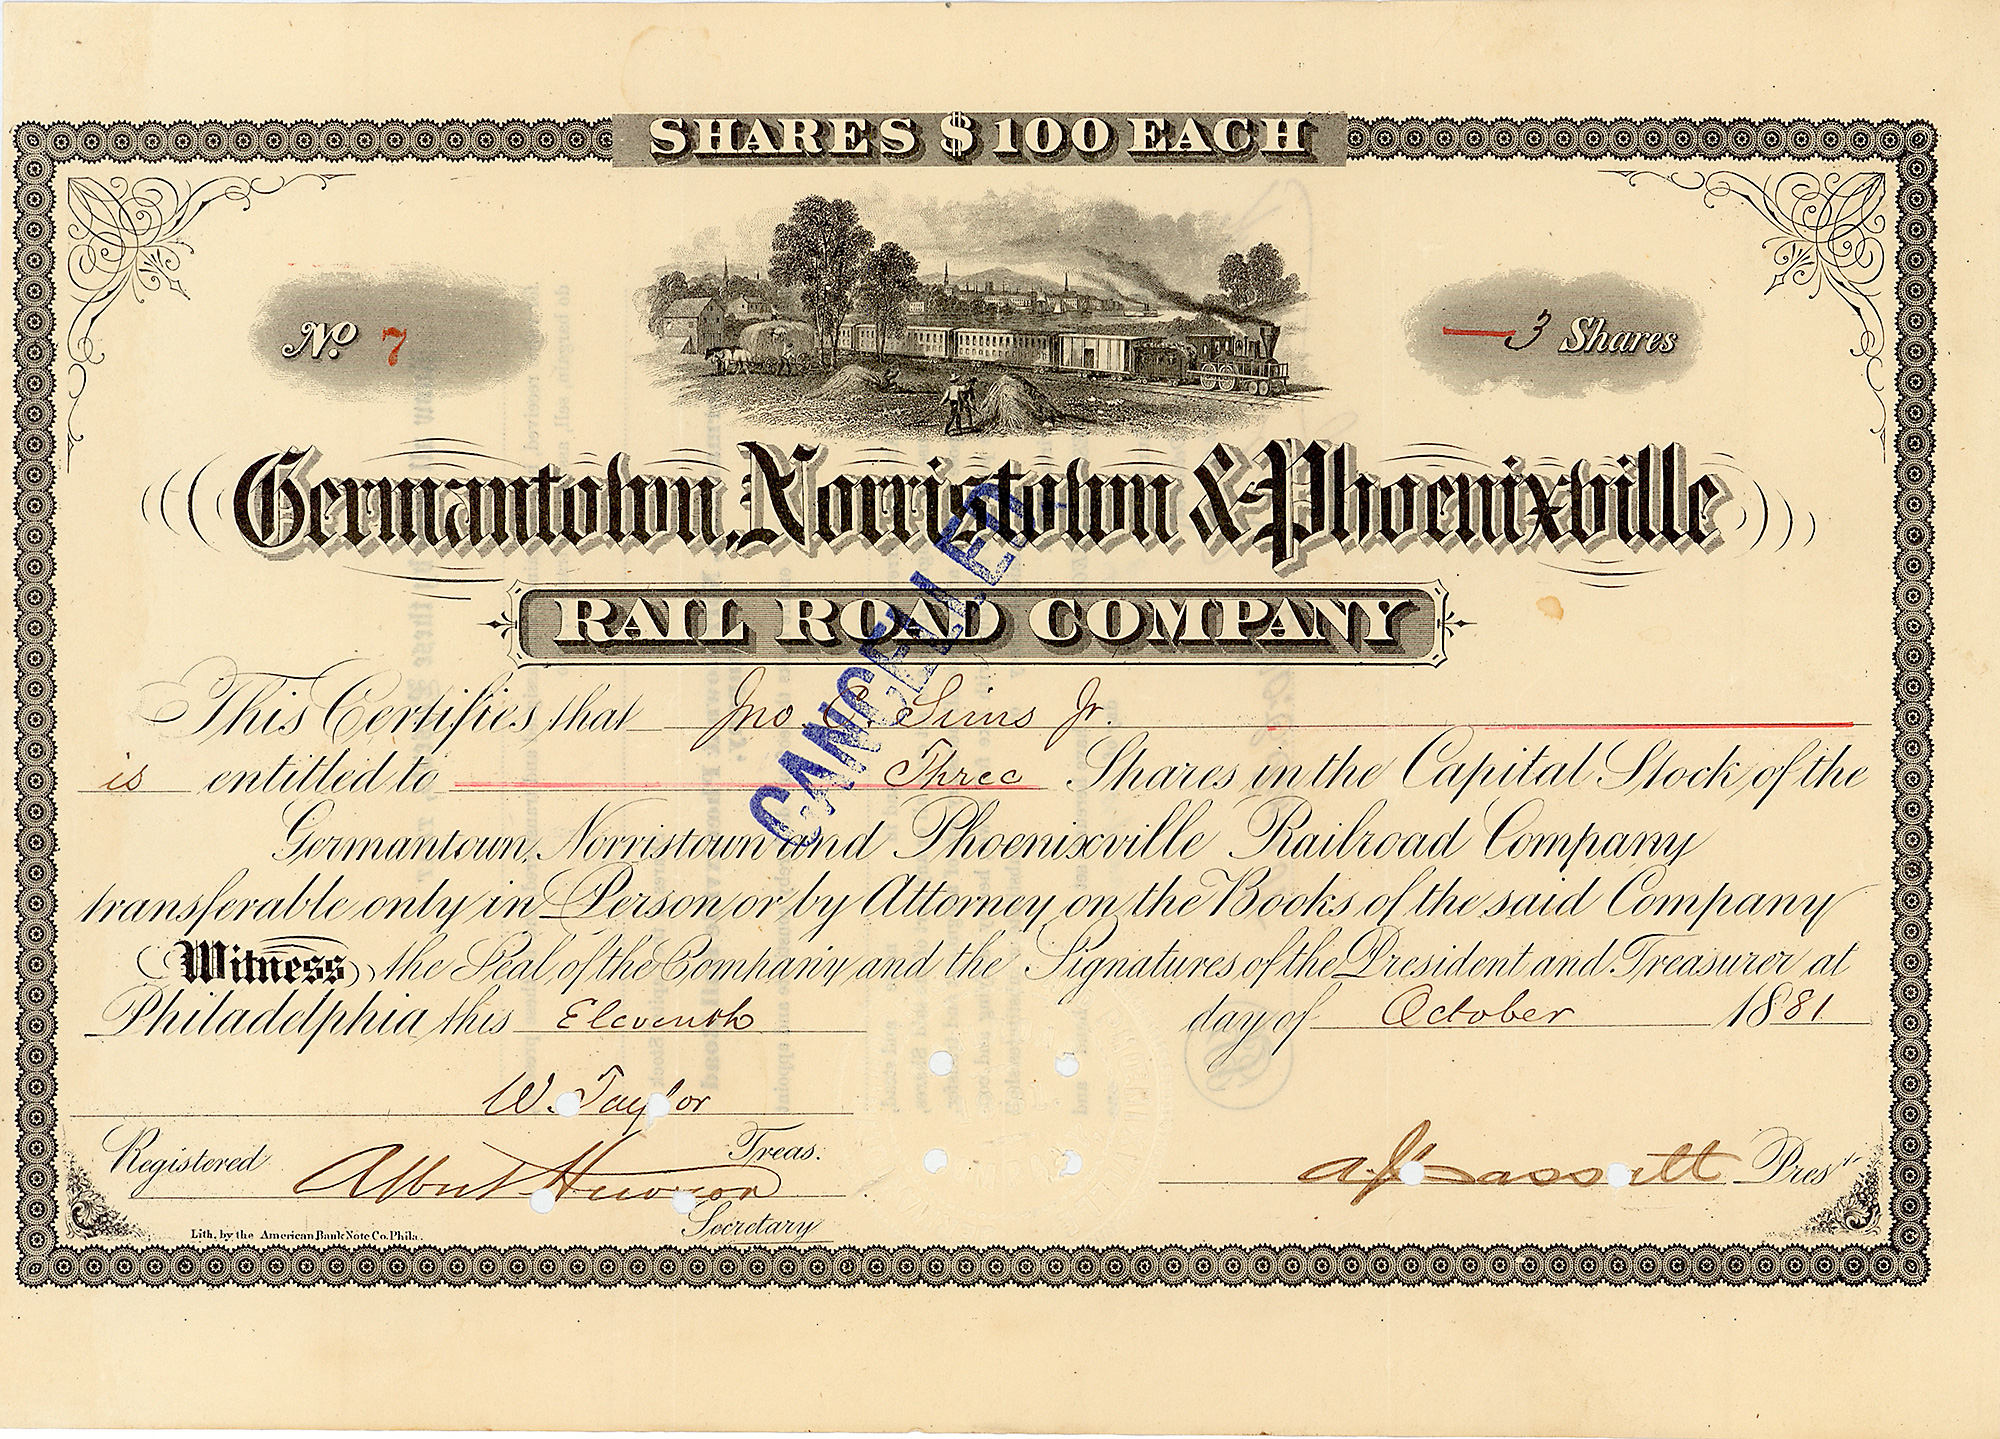 SHARES $100 EACH
No. 7
3 Shares
Germantown, Norristown & Phoenixville
RAIL ROAD COMPANY
CANCELLED
This Certifies that Jno C. Sims Jr.
is entitled to Three Shares in the Capital Stock of the
Germantown, Norristown and Phoenixville Railroad Company
transferable only in Person or by Attorney on the Books of the said Company
Witness, the Seal of the Company and the Signatures of the President and Treasurer at
Philadelphia this Eleventh day of October 1881
W. Taylor
Treas.
Registered
Albert Hewson
Secretary
A J Cassatt Prest
Lith. by the American Bank Note Co. Phila.